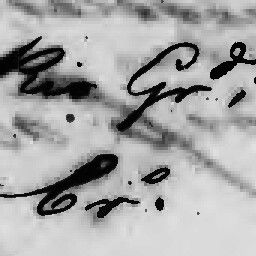 Rio Gr.de,
Cr.o